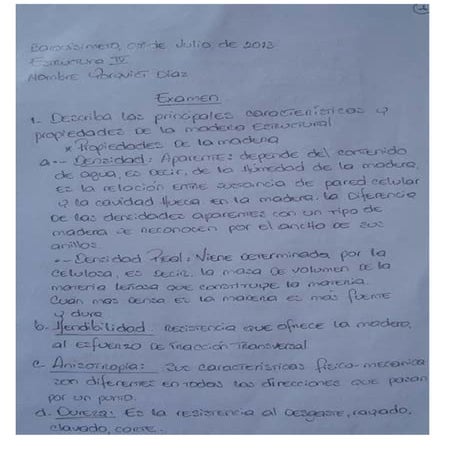 Barquisimeto, 07 de Julio de 2013
Estructura IV
Nombre Díaz
Examen
1- Describa las principales características y
propiedades de la madera Estructural
* Propiedades De la madera
a.-- Densidad: Aparente: depende del contenido
de agua, es decir, de la Humedad de la madera,
es la relación entre sustancia de pared celular
y la cavidad Hueca en la madera. La Diferencia
De las densidades aparentes con un tipo de
madera se Reconocen por el ancho de sus
anillos.
-- Densidad Real: Viene determinada por la
celulosa, es decir, la masa de volumen de la
materia leñosa que constituye la materia.
Cuan mas densa es la madera es más fuerte
y dura
b. Hendibilidad: Resistencia que ofrece la madera,
al esfuerzo de Tracción Transversal
c. Anisotropia: Sus características físico-mecanica
son diferentes en todas las direcciones que pasan
por un punto.
d. Dureza: Es la resistencia al desgaste, rayado,
clavado, corte.